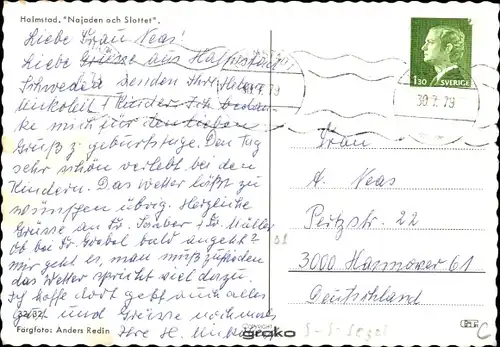 Halmstad. "Najaden och Slottet".
Liebe Frau Neas!
Liebe Grüsse aus Halmstad
Schweden senden Ihre Helene
+ Kinder. Ich bedan-
ke mich für den lieben
Gruß z. Geburtstage. Den Tag
sehr schön verlebt bei den
Kindern. Das Wetter läßt zu
wünschen übrig. Herzliche
Grüsse an Fr. + Fr. Müller
Ob bei Fr. bald angeht?
Mir geht es, man muß zufrieden
das Wetter spricht viel dazu.
Ich hoffe dort geht auch alles
gut und Grüsse nochmals
Ihre H.
Fargfoto: Anders Redin
grako
1.30 SVERIGE
30.7.79
Frau
A. Neas
Pertzstr. 22
3000 Hannover 61
Deutschland
C